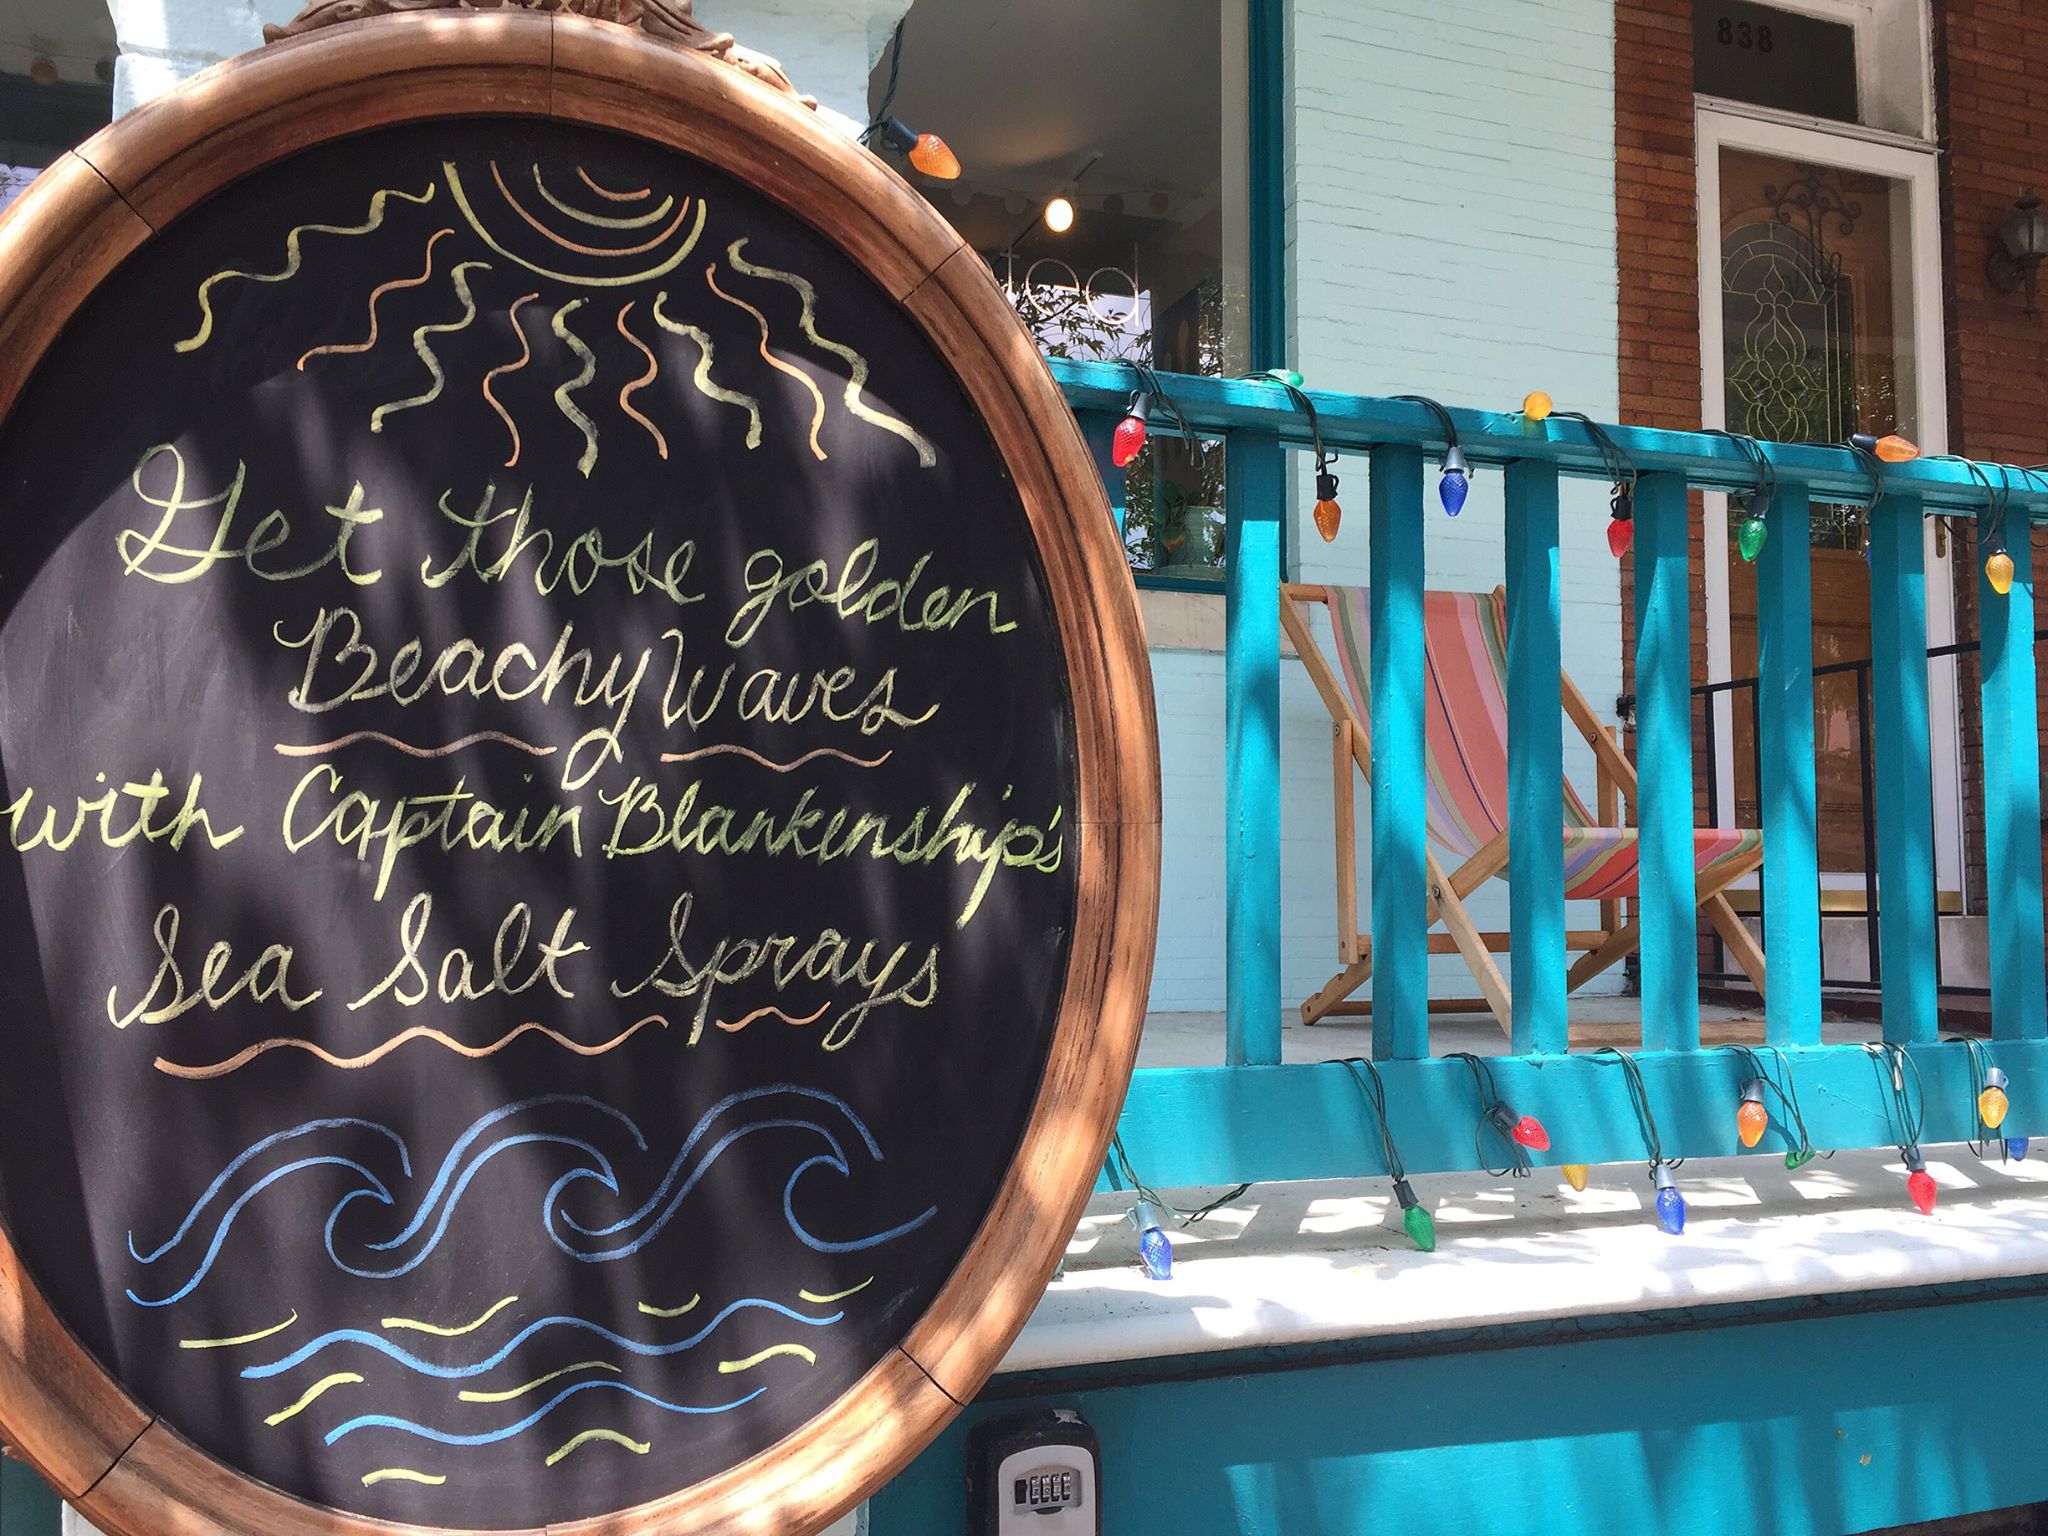 838
Get those golden
Beachy Waves
with Captain Blankenship's
Sea Salt Sprays